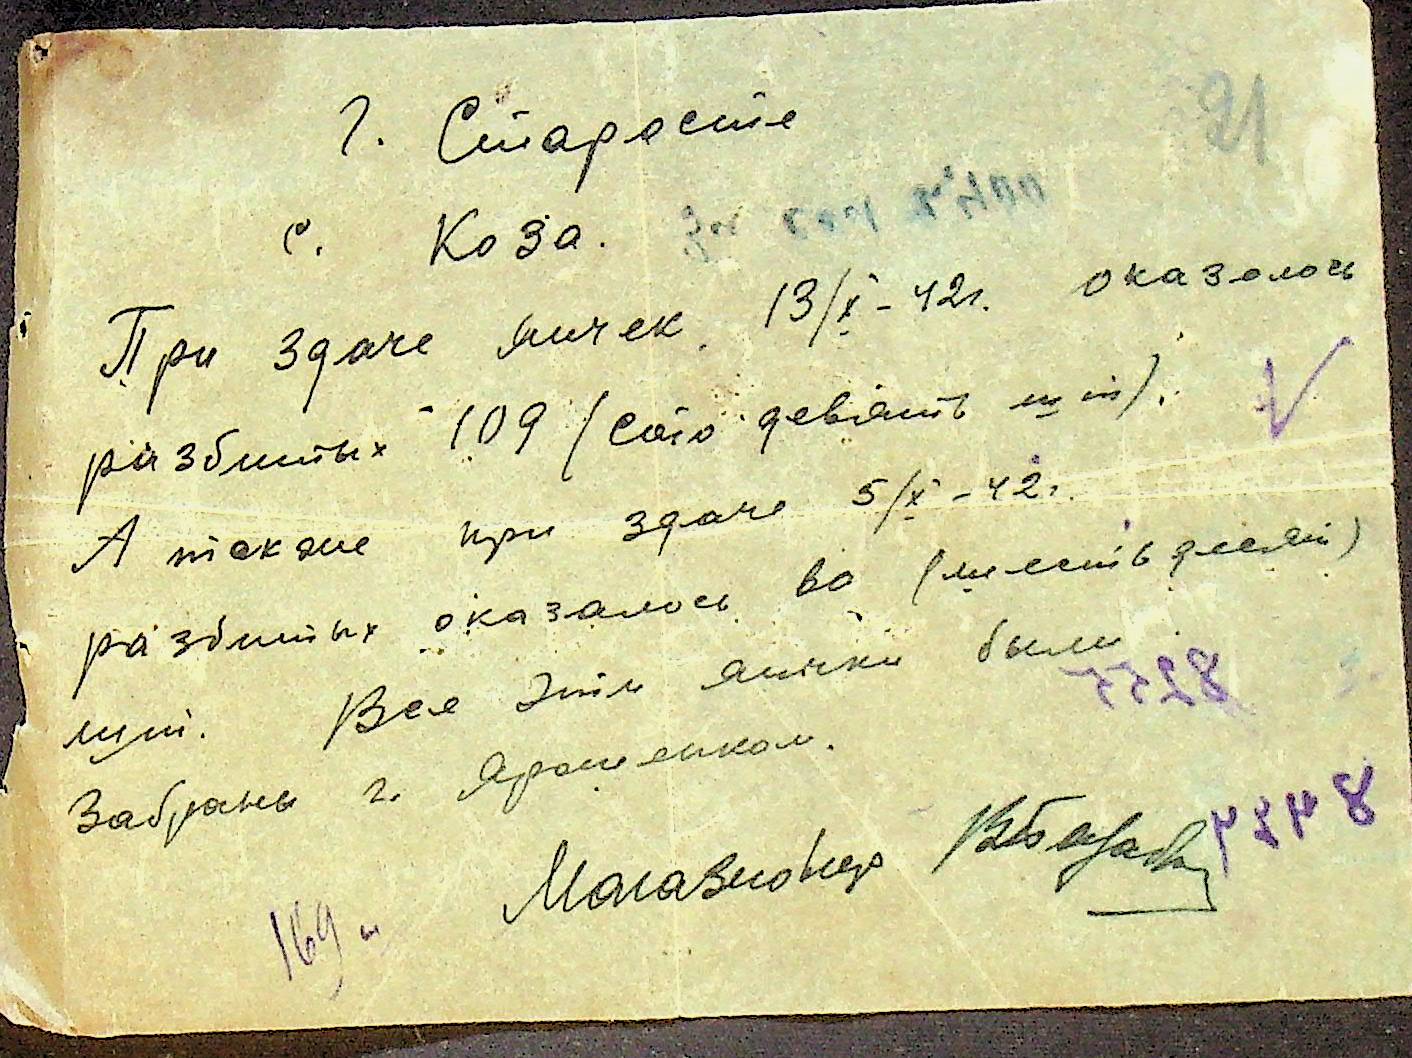 г. Старосте
21
с. Коза.
При здаче яичек 13/X-42г. оказалось
разбитых 109 (сто девять шт).
А также при здаче 5/X-42г.
разбитых оказалось 60 (шестьдесят)
шт. Все эти яички были
8255
забраны г. Ярошенком.
Магазионер
169 ш